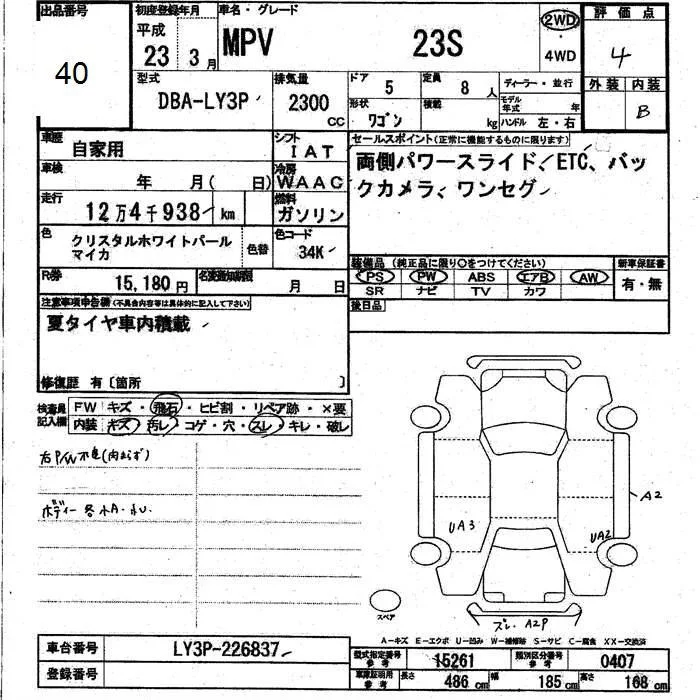 出品番号
40
初度登録年月
平成
23 年 3 月
車名・グレード
MPV 23S
2WD
・
4WD
評価点
4
外装 内装
B
型式
DBA-LY3P
排気量
2300 CC
ドア 5
定員 8 人
形状 ワゴン
積載 kg
ディーラー・並行
モデル年式 年
ハンドル 左・右
車歴
自家用
シフト
IAT
車検 年 月( 日)
冷房
WAAC
走行
12万4千938 km
燃料
ガソリン
色
クリスタルホワイトパール
マイカ
色替
色コード
34K
R券 15,180円
名変通知期限 月 日
セールスポイント(正常に機能するものに限ります)
両側パワースライド、ETC、バッ
クカメラ、ワンセグ
装備品 (純正品に限り○をつけてください)
PS PW ABS エアB AW
SR ナビ TV カワ
新車保証書
有・無
後日品
注意事項申告欄(不具合内容等は具体的に記入して下さい)
夏タイヤ車内積載
修復歴 有〔箇所 〕
検査員
記入欄
FW キズ・飛石・ヒビ割・リペア跡・×要
内装 キズ・汚レ・コゲ・穴・スレ・キレ・破レ
右P/W不良
ボディー 各小A・小U
A2
UA3
UA2
スレ A2P
スペア
A-キズ E-エクボ U-凹み W-補修跡 S-サビ C-腐食 XX-交換済
車台番号 LY3P-226837
登録番号
型式指定番号
参考
15261
類別区分番号
参考
0407
車庫証明用
参考
長さ 486 cm
幅 185 cm
高さ 168 cm